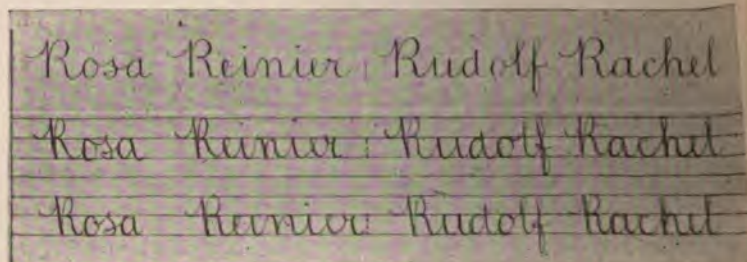 Rosa Reinier Rudolf Rachel
Rosa Reinier Rudolf Rachel
Rosa Reinier Rudolf Rachel